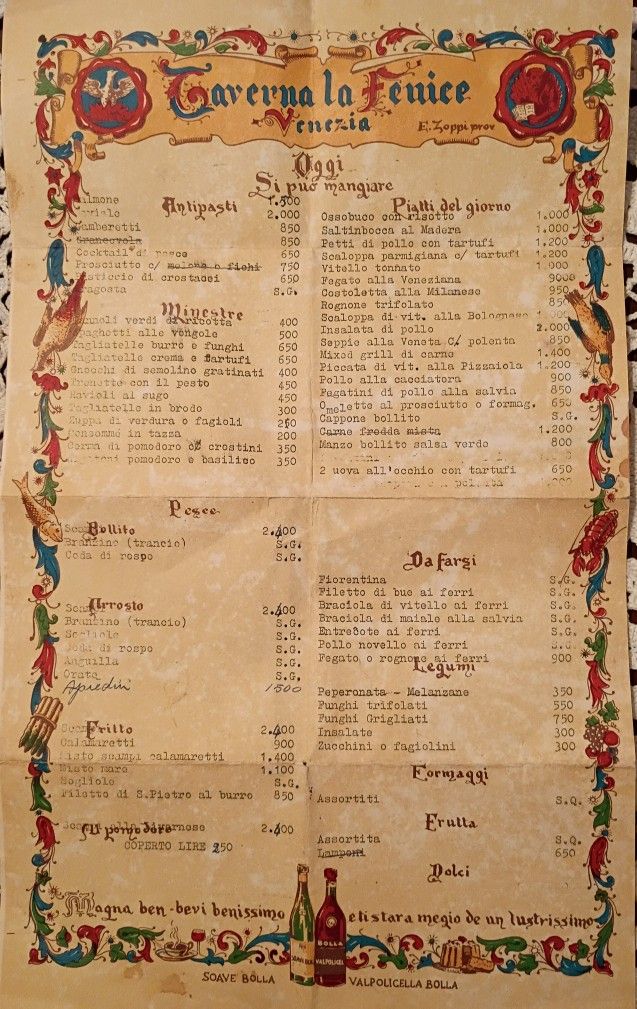 Taverna la Fenice
Venezia
E. Zoppi prov
Oggi
Si può mangiare
Antipasti
1.500
2.000
850
Granceola 850
Cocktail di pesce 650
Prosciutto c/ melone o fichi 750
di crostacei 650
S.G.
Minestre
verdi di ricotta 400
alle vongole 500
Tagliatelle burro e funghi 650
Tagliatelle crema e tartufi 650
Gnocchi di semolino gratinati 400
con il pesto 450
Ravioli al sugo 450
Tagliatelle in brodo 300
Zuppa di verdura o fagioli 250
Consommé in tazza 200
Crema di pomodoro c/ crostini 350
pomodoro e basilico 350
Pesce
Bollito
2.400
Branzino (trancio) S.G.
Coda di rospo S.G.
Arrosto
2.400
Branzino (trancio) S.G.
Sogliole S.G.
Coda di rospo S.G.
Anguilla S.G.
Orate S.G.
1500
Fritto
2.400
Calamaretti 900
Misto scampi calamaretti 1.400
Misto mare 1.100
Sogliole S.G.
Filetto di S.Pietro al burro 850
Al pomodoro
2.400
COPERTO LIRE 250
Piatti del giorno
Ossobuco con risotto 1.000
Saltinbocca al Madera 1.000
Petti di pollo con tartufi 1.200
Scaloppa parmigiana c/ tartufi 1.200
Vitello tonnato 1.000
Fegato alla Veneziana 900
Costoletta alla Milanese 950
Rognone trifolato 850
Scaloppa di vit. alla Bolognese
Insalata di pollo 2.000
Seppie alla Veneta c/ polenta 850
Mixed grill di carne 1.400
Piccata di vit. alla Pizzaiola 1.200
Pollo alla cacciatora 900
Fegatini di pollo alla salvia 850
Omelette al prosciutto o formag. 650
Cappone bollito S.G.
Carne fredda mista 1.200
Manzo bollito salsa verde 800
2 uova all'occhio con tartufi 650
Da farsi
Fiorentina S.G.
Filetto di bue ai ferri S.G.
Braciola di vitello ai ferri S.G.
Braciola di maiale alla salvia S.G.
Entrecôte ai ferri S.G.
Pollo novello ai ferri S.G.
Fegato o rognone ai ferri 900
Legumi
Peperonata - Melanzane 350
Funghi trifolati 550
Funghi Grigliati 750
Insalate 300
Zucchini o fagiolini 300
Formaggi
Assortiti S.Q.
Frutta
Assortita S.Q.
Lamponi 650
Dolci
Magna ben - bevi benissimo e ti stara megio de un lustrissimo
SOAVE BOLLA
BOLLA
VALPOLICELLA
SOAVE BOLLA VALPOLICELLA BOLLA